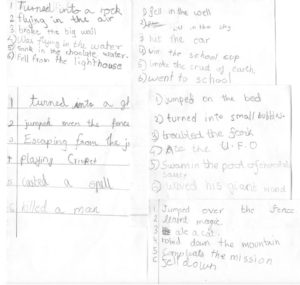 1 Turned into a rock
2 flying in the air
3 broke the big wall
4) Was flying in the water
5) Sunk in the choclate water.
6) Fell from the lighthouse
fell in the well
in the sky
hit the car
win the school cup
5) broke the crust of earth,
6) went to school
1 turned into a
2 jumped over the fence
3 Escaping from the
4 playing Cricket
5 casted a spell
6 killed a man
1) jumped on the bed
2) turned into small
3) the
4) Ate the U.F.O
5) Swam in the pool of chocolate
6) waved his giant wand
1 Jumped over the fence
2 learnt magic.
3 ate a cat.
4 down the mountain
5 Complete the mission
fell down